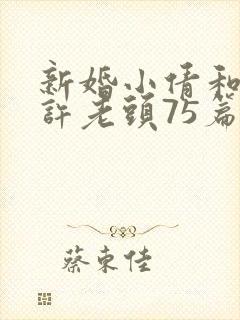 新婚小倩和
許老頭75篇
蔡東佳